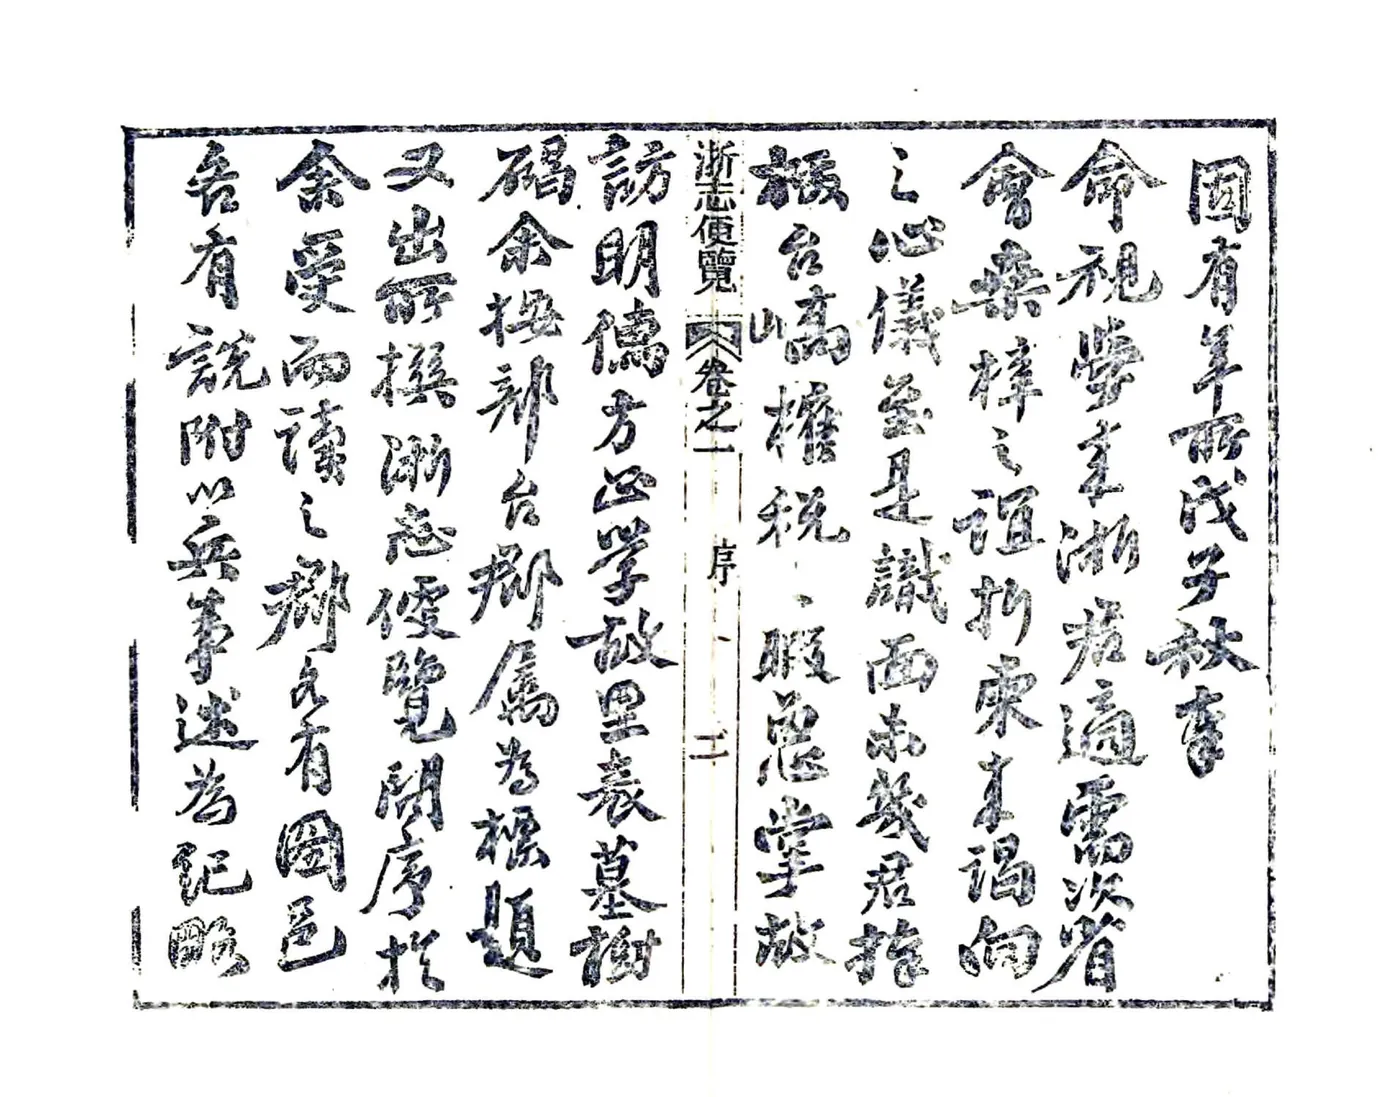 固有年所戊子秋奉
命視學來浙君適需次省
會桑梓之誼折柬來謁向
之心儀至是識面未幾君捧
檄台嶠榷税、暇蒐掌故
浙志便覽 卷之一 序 二
訪明儒方正學故里表墓樹
碣余按部台郡屬為楹題
又出所撰浙志便覽問序於
余受而讀之郡各有圖邑
各有說附以兵事述為紀略